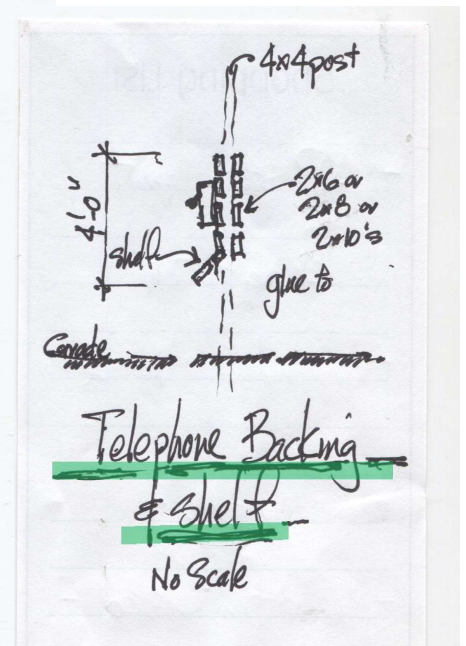 4x4 post
4'-0"
2x6 or
2x8 or
2x10's
shelf
glue to
Grade
Telephone Backing
& Shelf
No Scale